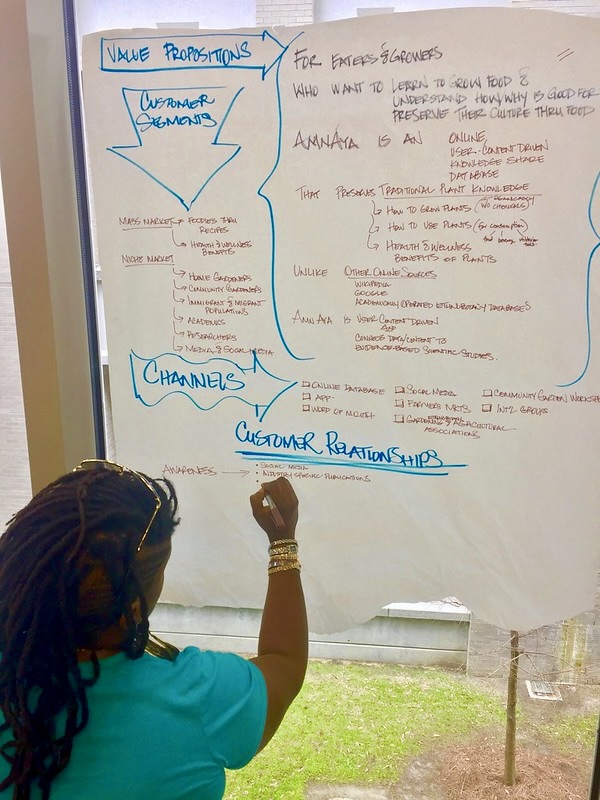 VALUE PROPOSITIONS
FOR EATERS & GROWERS
WHO WANT TO LEARN TO GROW FOOD &
UNDERSTAND HOW/WHY IS GOOD FOR
PRESERVE THEIR CULTURE THRU FOOD
AMNAYA IS AN ONLINE,
USER-CONTENT DRIVEN
KNOWLEDGE SHARE
DATABASE
THAT PRESERVES TRADITIONAL PLANT KNOWLEDGE
HOW TO GROW PLANTS (ORGANICALLY
W/O CHEMICALS)
HOW TO USE PLANTS (for consumption,
HEALTH & WELLNESS
BENEFITS OF PLANTS
UNLIKE OTHER ONLINE SOURCES
WIKIPEDIA
GOOGLE
ACADEMICALLY OPERATED ETHNOBOTANY DATABASES
AMNAYA IS USER CONTENT DRIVEN
AND
CONNECTS DATA/CONTENT TO
EVIDENCE-BASED SCIENTIFIC STUDIES.
CUSTOMER
SEGMENTS
MASS MARKET
FOODIES THRU
RECIPES
HEALTH & WELLNESS
BENEFITS
NICHE MARKET
HOME GARDENERS
COMMUNITY GARDENERS
IMMIGRANT & MIGRANT
POPULATIONS
ACADEMICS
RESEARCHERS
MEDIA & SOCIAL MEDIA
CHANNELS
ONLINE DATABASE
APP
WORD OF MOUTH
SOCIAL MEDIA
FARMERS MKTS
GARDENING & AGRICULTURAL
ASSOCIATIONS
COMMUNITY GARDEN WORKSH
INT'L GROUPS
CUSTOMER RELATIONSHIPS
AWARENESS
• SOCIAL MEDIA
• INDUSTRY SPECIFIC PUBLICATIONS